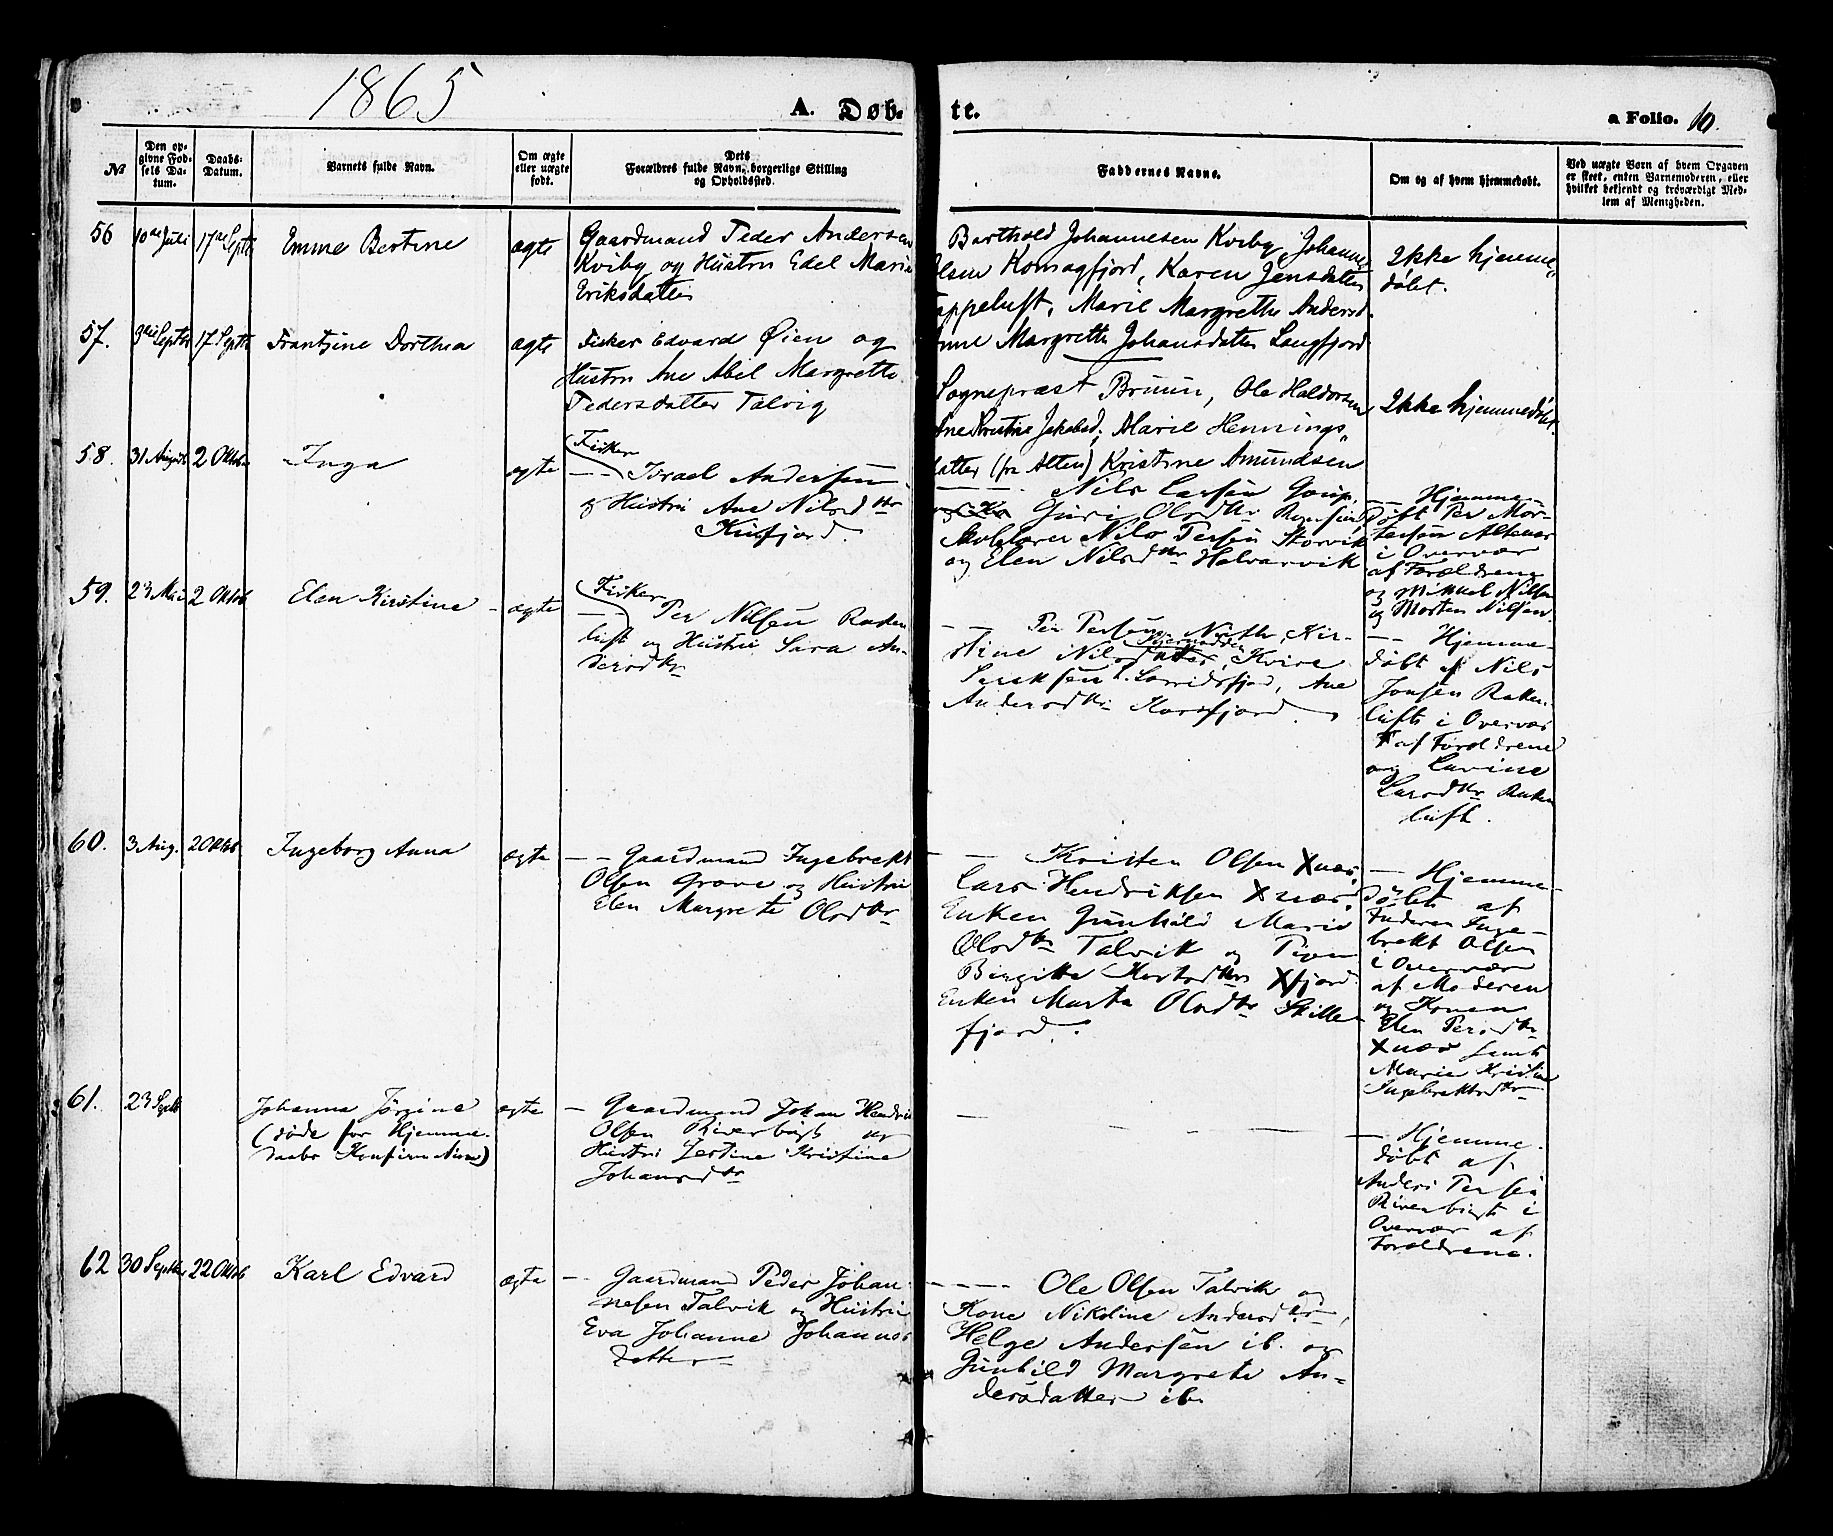 1865
A. Døb-
te.
a Folio. 10.
№
Den op-
givne Fød-
sels Da-
tum.
Daabs-
Datum.
Barnets fulde Navn.
Om ægte
eller uægte
født.
Dets
Forældres fulde Navn, borgerlige Stilling
og Opholdssted.
Faddernes Navne.
Om og af hvem hjemmedøbt.
Ved uægte Børn af hvem Opgaven
er skeet, enten Barnemoderen, eller
hvilket bekjendt og troværdigt Med-
lem af Menigheden.
56
10de Juli
17de Septb
Emme Bertine
ægte
Gaardmand Peder Andersen
Kviby og Hustru Edel Marie
Eriksdatter
Barthold Johannesen Kviby, Johannes
Olsen Komagfjord, Karen Jensdatter
Tappeluft, Marie Margrethe Andersd.
Anne Margrethe Johansdatter Langfjord
Ikke hjemme-
døbt.
57.
3die Septbr
17 Septb
Frantzine Dorthea
ægte
Fisker Edvard Øien og
Hustru Ane Abel Margrethe
Pedersdatter Talvig
Sognepræst Bruun, Ole Haldorsen
Ane Kristine Jakobsd., Marie Hennings-
datter (fra Alten) Kristine Amundsen
Ikke hjemmedøbt.
58.
31 August
2 Oktob
Inga
ægte
Fisker
— Israel Andersen
& Hustru Ane Nilsdtr
Kusfjord.
Nils Larsen
Guri Olsdtr
Nils Persen Storvik
og Elen Nilsdtr Halvarvik
— Hjemme-
døbt Per Mor-
tensen Altenes
i Overvær
af Forældrene
og Mikkel Nilsen
og Morten Nilsen.
59.
23 Mai
2 Oktob
Elen Kirstine
ægte
Fisker
— Per Nilsen Raken
luft og Hustru Sara An-
dersdtr
— — Per Persen Kir-
stine Nilsdatter,
Ane
Andersdtr Korsfjord.
— Hjemme-
døbt af Nils
Jonsen Raken-
luft i Overvær
af Forældrene
og Lavine
Larsdtr Raken
luft.
60.
3 Aug.
2 Oktob
Ingeborg Anna
ægte
— — Gaardmand Ingebrekt
Olsen Grove og Hustru
Elen Margrete Olsdtr
— — Kristen Olsen Xnæs,
Lars Hendriksen Xnæs.
Enken Gunhild Marie
Olsdtr Talvik og Pigen
Birgitte Xfjord
Enken Marta Olsdtr Skille
fjord.
— Hjemme-
døbt af
Faderen Inge-
brekt Olsen
i Overvær
af Moderen
og Konen
Elen Persdtr
Xnæs samt
Marie Kristine
Ingebrektsdtr
61.
23 Septb
Johanna Jørgine
(døde før Hjemme-
daabs Konfirmation)
ægte
— Gaardmand Johan Hendrik
Olsen Riverbugt og
Hustru Zertine Kristine
Johansdtr
— — — —
— Hjemme-
døbt af
Anders Persen
Riverbugt i
Overvær af
Forældrene.
62
30 Septbr
22 Oktob
Karl Edvard
ægte
— Gaardmand Peder Johan-
nesen Talvik og Hustru
Eva Johanne Johannes
datter
— — — — Ole Olsen Talvik og
Kone Nikoline Andersdtr,
Helge Andersen ib. og
Gunhild Margrete An-
dersdatter ib.